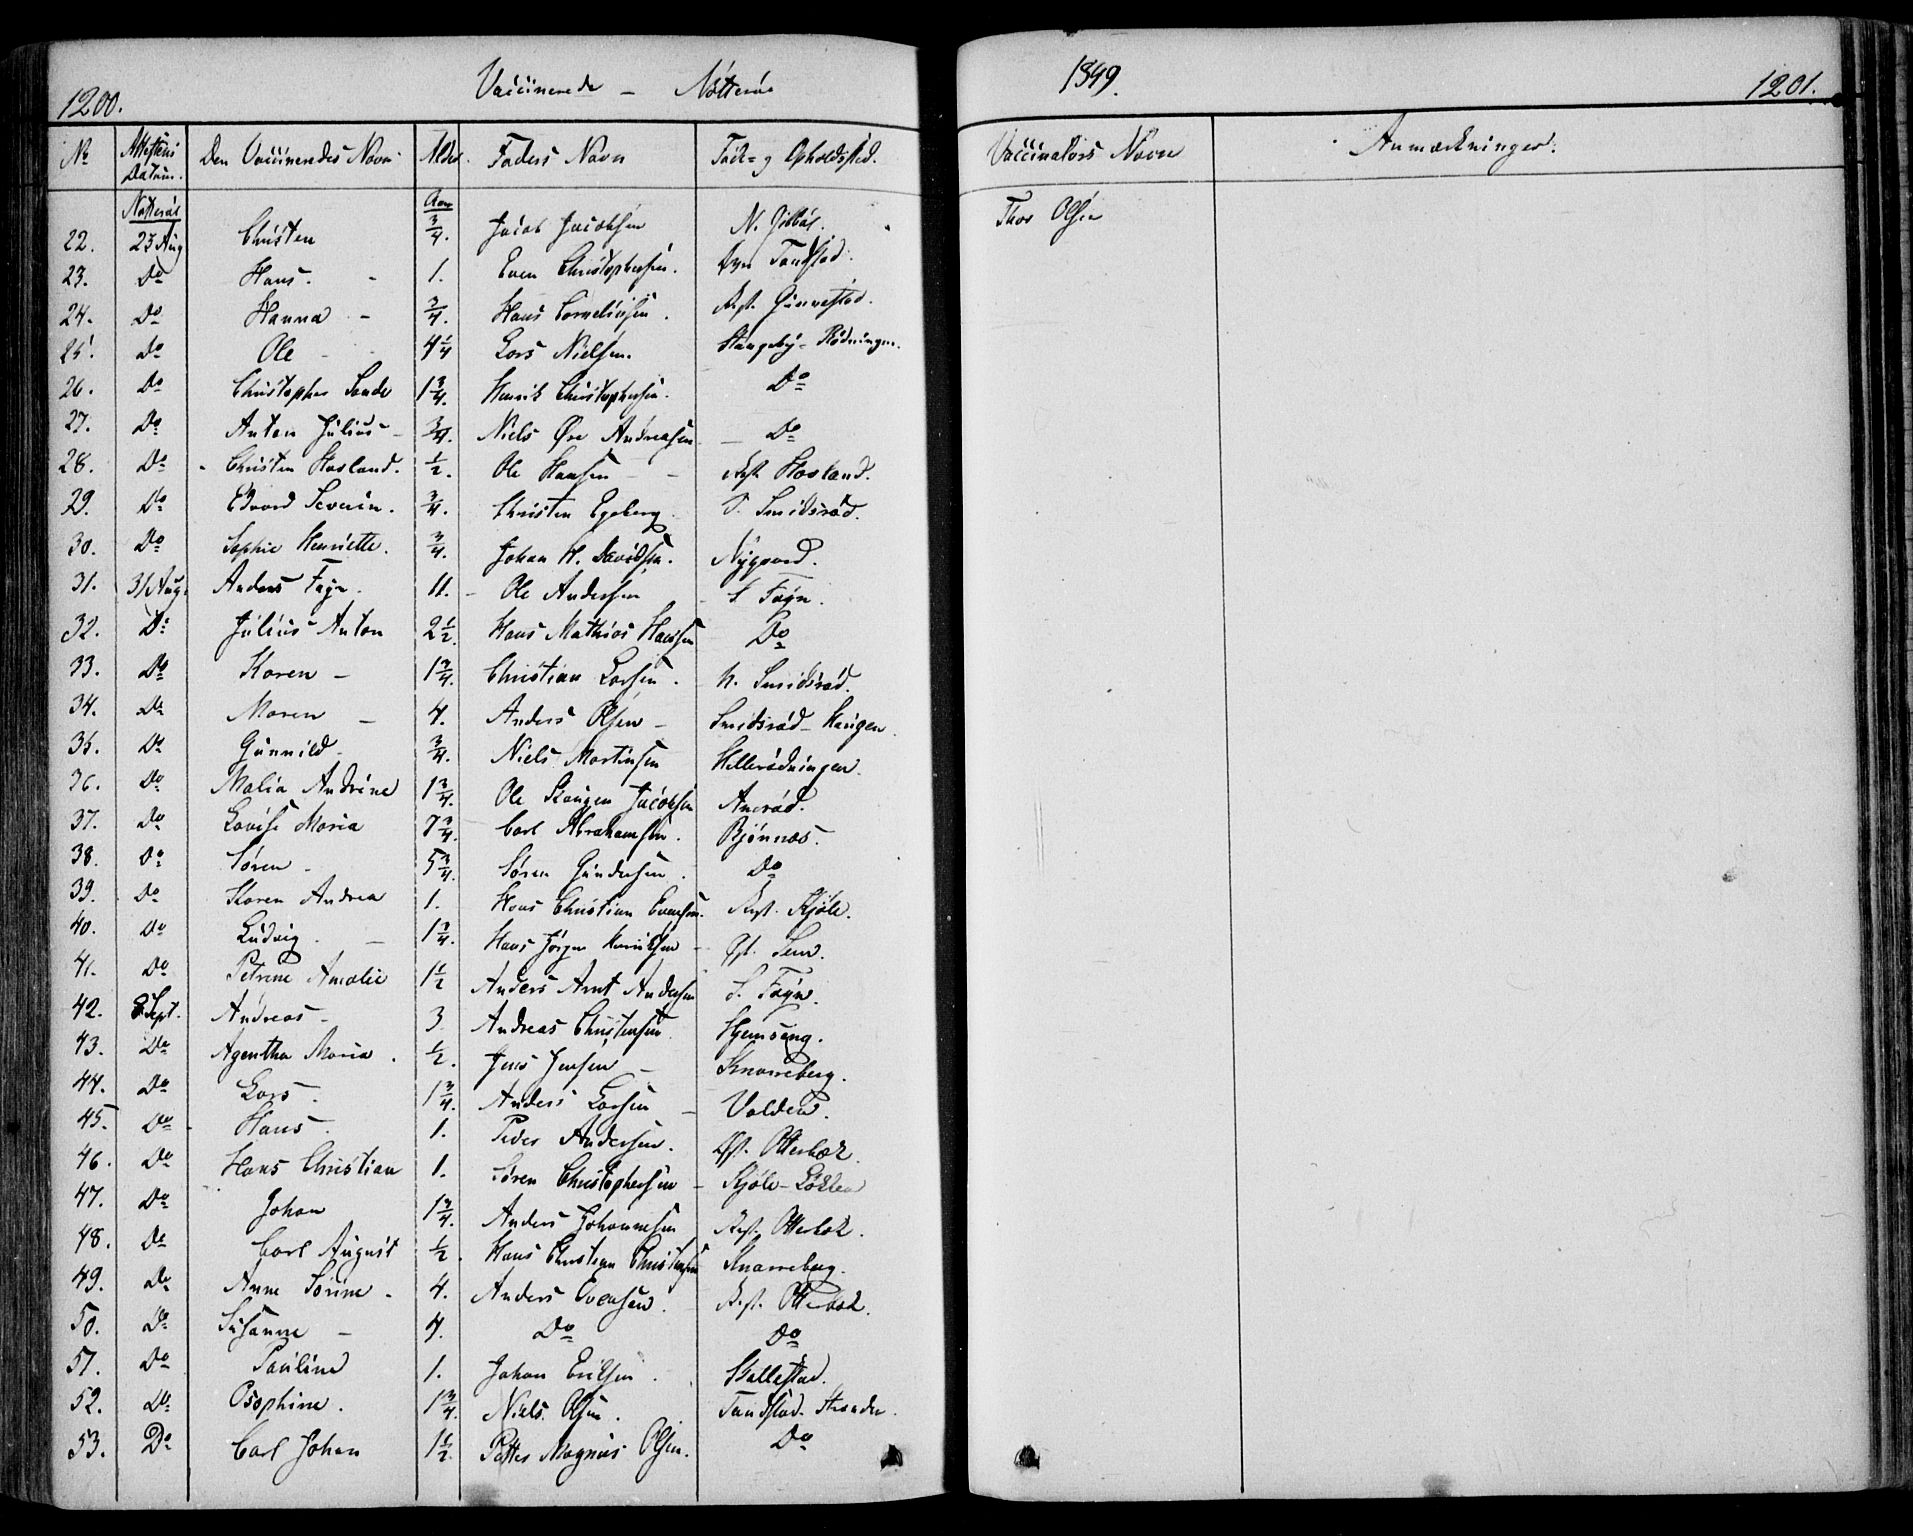 1200. Vaccinerede – Nötterøe
1849. 1201.
No Attestens Datum. Den Vaccineredes Navn Alder. Faders Navn Føde- og Opholdsted. Vaccinators Navn Anmærkninger.
Nøtterøe Aar
22. 23 Aug Christen 3/4. Jacob Jacobsen N. Thor Olsen
23. Do Hans. 1. Even Christophersen. Tandstad.
24. Do Hanna – 3/4. Hans Corneliusen. Gunnestad.
25. Do Ole – 4 1/4 Lars Nielsen. Stangeby-Rødningen.
26. Do Christopher 1 3/4. Henrik Christophersen. Do
27. Do Anton Julius – 3/4. Niels Øre Andreasen – Do
28. Do Christen Hasland. 1/2. Ole Hansen – Hasland.
29. Do Edvard Severin. 3/4. Christen Egeberg S. Smidsrød.
30. Do Sophie Henriette. 3/4. Johan H. Davidsen. Nygaard.
31. 31 Aug. Anders Føyn. 11. – Ole Andersen S. Føyn.
32. Do Julius Anton 2 1/2. Hans Mathias Hansen Do
33. Do Karen – 1 3/4. Christian Larsen. N. Smidsrød.
34. Do Maren – 4. Anders Olsen – Smidsrød-Haugen.
35. Do Gunnild – 3/4. Niels Martinsen Hellerødningen.
36. Do Malia Andrine 1 3/4. Ole Skougen Jacobsen Aarød.
37. Do Lovise Maria 7 3/4. Carl Abrahamsen. Bjønnæs.
38. Do Søren – 5 3/4. Søren Gundersen. Do
39. Do Karen Andrea 1. Hans Christian Evensen. Kjøle.
40. Do Ludvig. – 1 3/4. Hans Jørgen Henriksen – Sem.
41. Do Petrine Amalie 1 1/2 Anders Arnt Andersen S. Føyn.
42. 8 Sept. Andreas – 3. Andreas Christensen Hjemseng.
43. Do Agentha Maria. 1/2. Jens Jensen – Knarreberg.
44. Do Lars. 1 3/4. Anders Larsen – Volden.
45. Do Hans. 1. Peder Andersen. Otterbæk.
46. Do Hans Christian 1. Søren Christophersen – Kjøle-Løkken
47. Do Johan 1 3/4. Anders Johannesen Otterbæk.
48. Do Carl August 1/2. Hans Christian Christensen Knarreberg.
49. Do Anne Sørine – 4. Anders Evensen. Otterbæk.
50. Do Susanne – 4. Do Do
51. Do Pauline 1. Johan Eriksen. Skallestad.
52. Do Osephine. 1 3/4. Niels Olsen. Tandstad-Stranden.
53. Do Carl Johan 1 1/2. Petter Magnus Olsen. Do